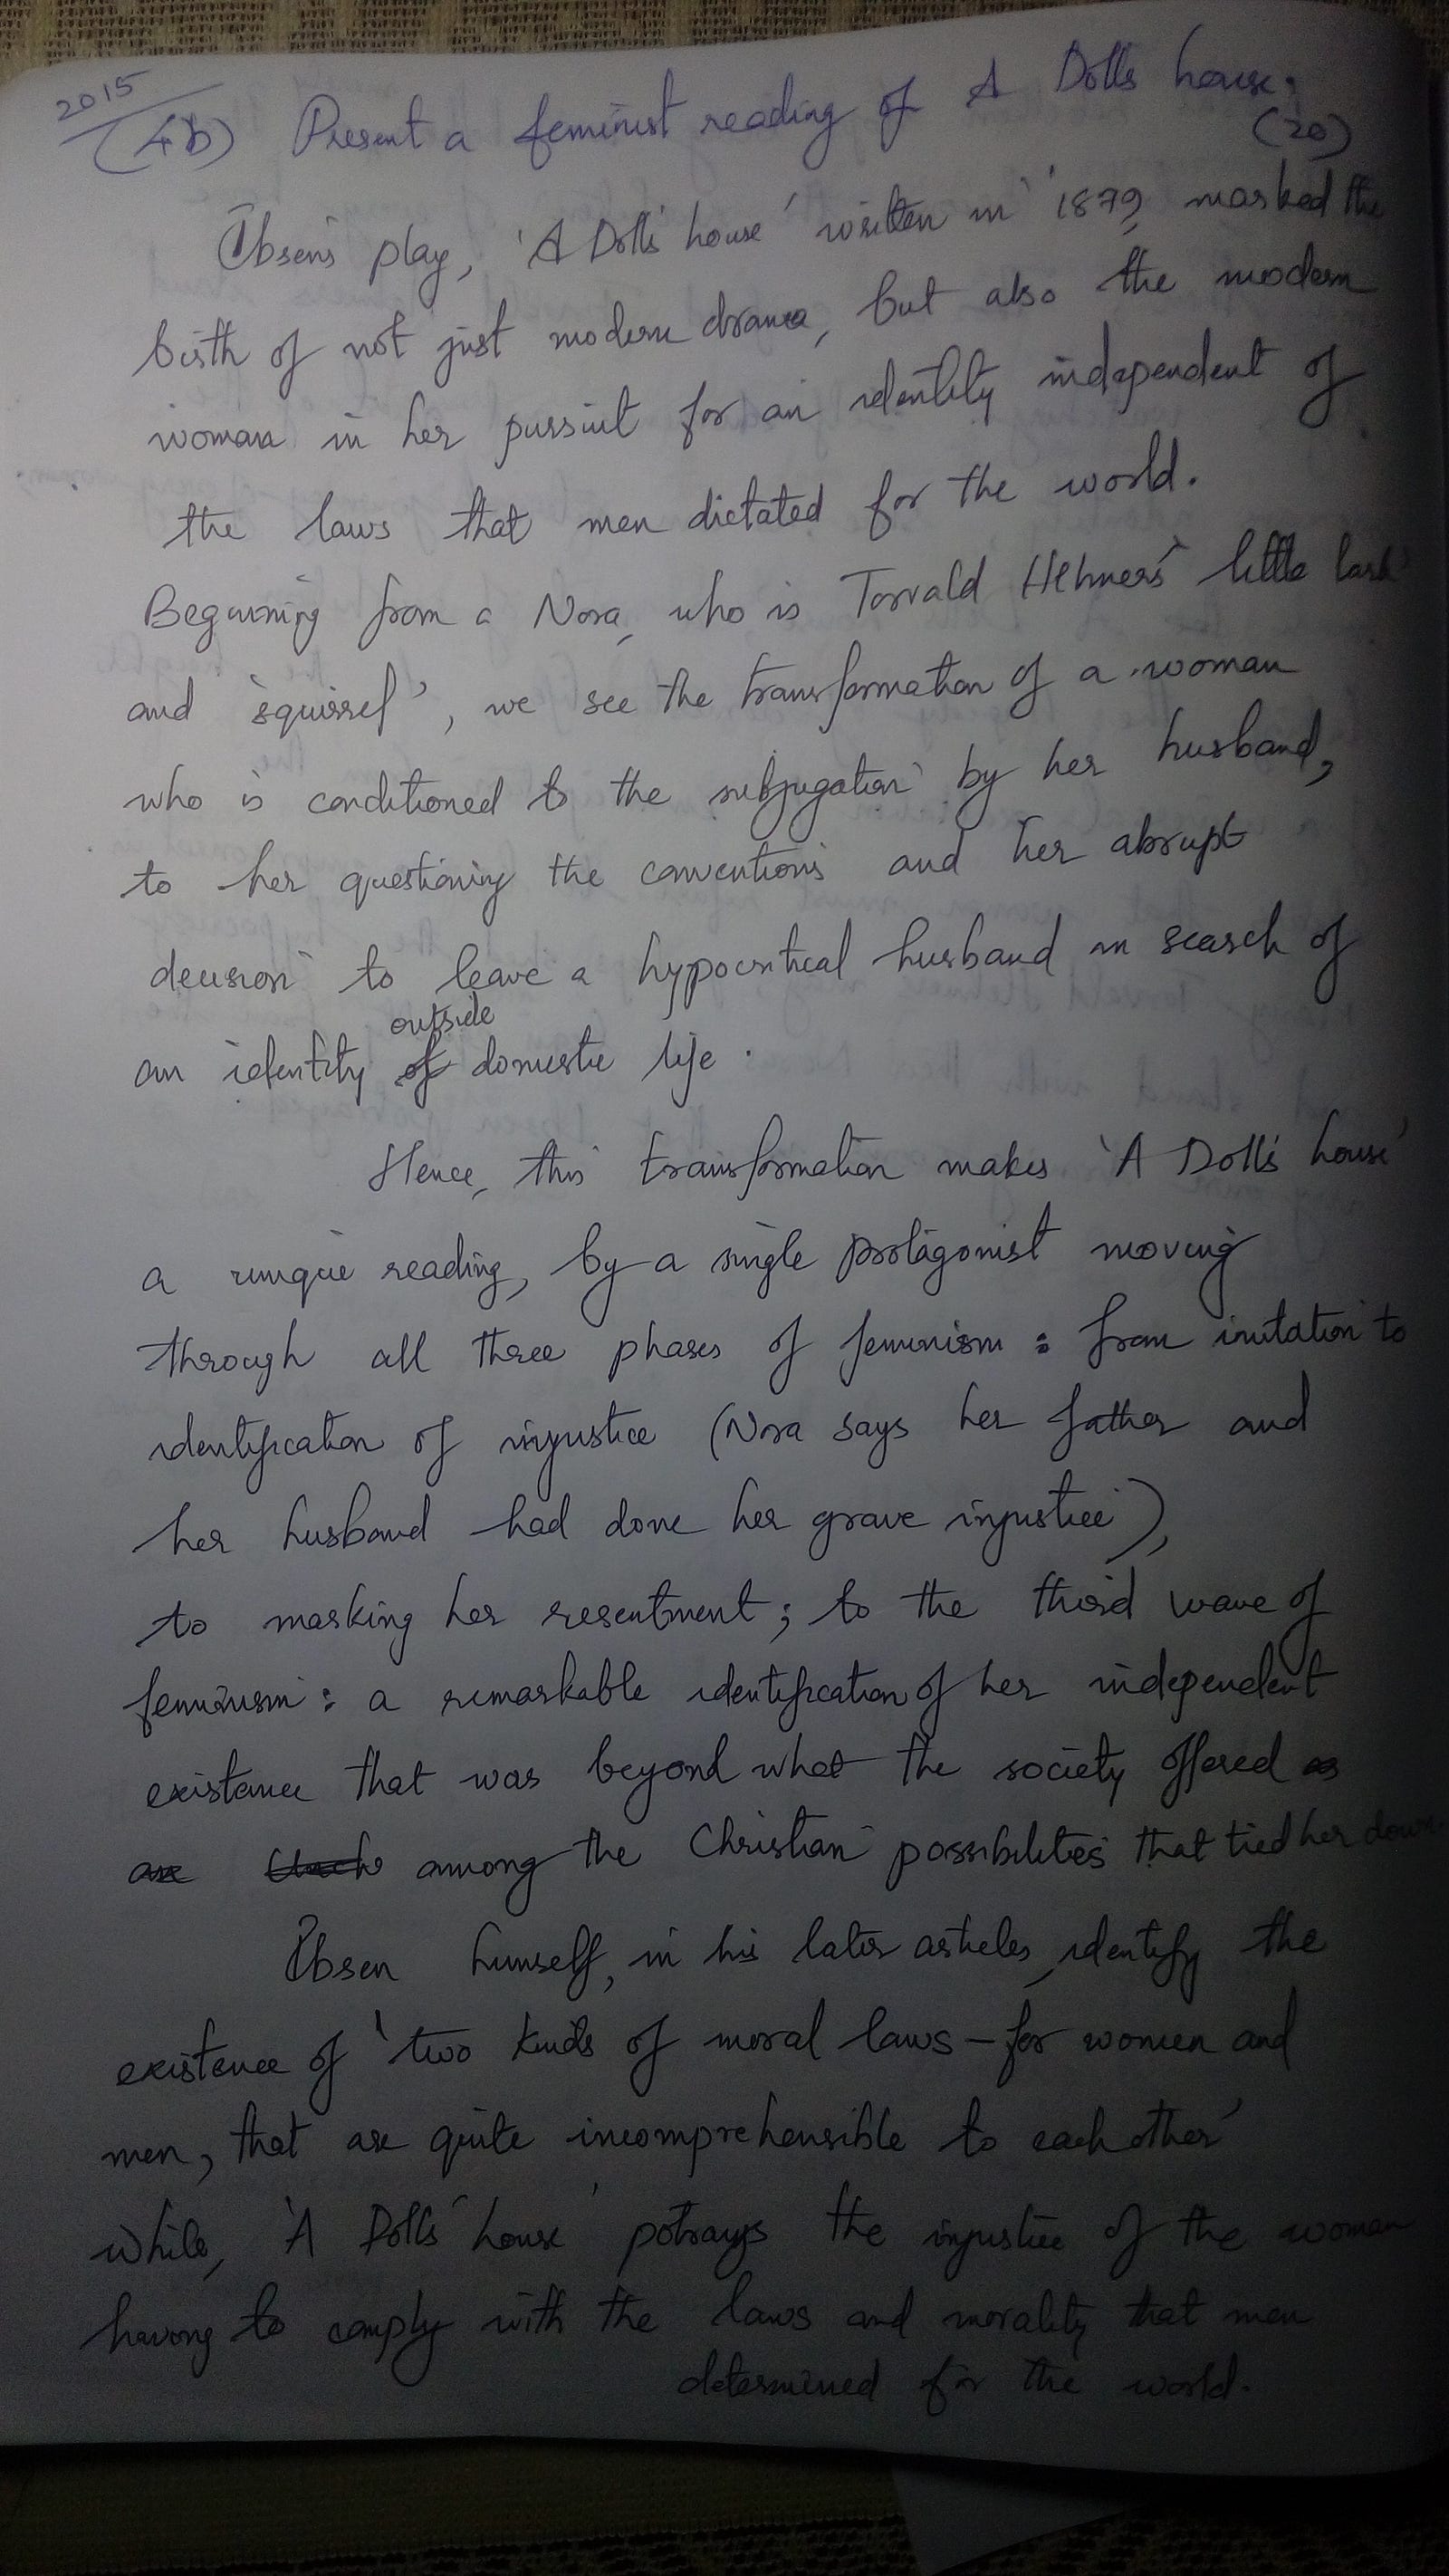 2015
(4b) Present a feminist reading of A Dolls house.
(20)
Ibsen's play, 'A Doll's house' written in 1879, marked the
birth of not just modern drama, but also the modern
woman in her pursuit for an identity independent of
the laws that men dictated for the world.
Beginning from a Nora, who is Torvald Helmer's 'little lark'
and 'squirrel', we see the transformation of a woman
who is conditioned to the subjugation by her husband,
to her questioning the conventions and her abrupt
decision to leave a hypocritical husband in search of
outside
an identity of domestic life.
Hence, this transformation makes 'A Doll's house'
a unique reading, by a single protagonist moving
through all three phases of feminism: from imitation to
identification of injustice (Nora says her father and
her husband had done her grave injustice),
to marking her resentment; to the third wave of
feminism: a remarkable identification of her independent
existence that was beyond what the society offered as
among the Christian possibilities that tied her down.
Ibsen himself, in his later articles, identify the
existence of 'two kinds of moral laws – for women and
men, that are quite incomprehensible to each other'
while, 'A Doll's house' potrays the injustice of the woman
having to comply with the laws and morality that men
determined for the world.